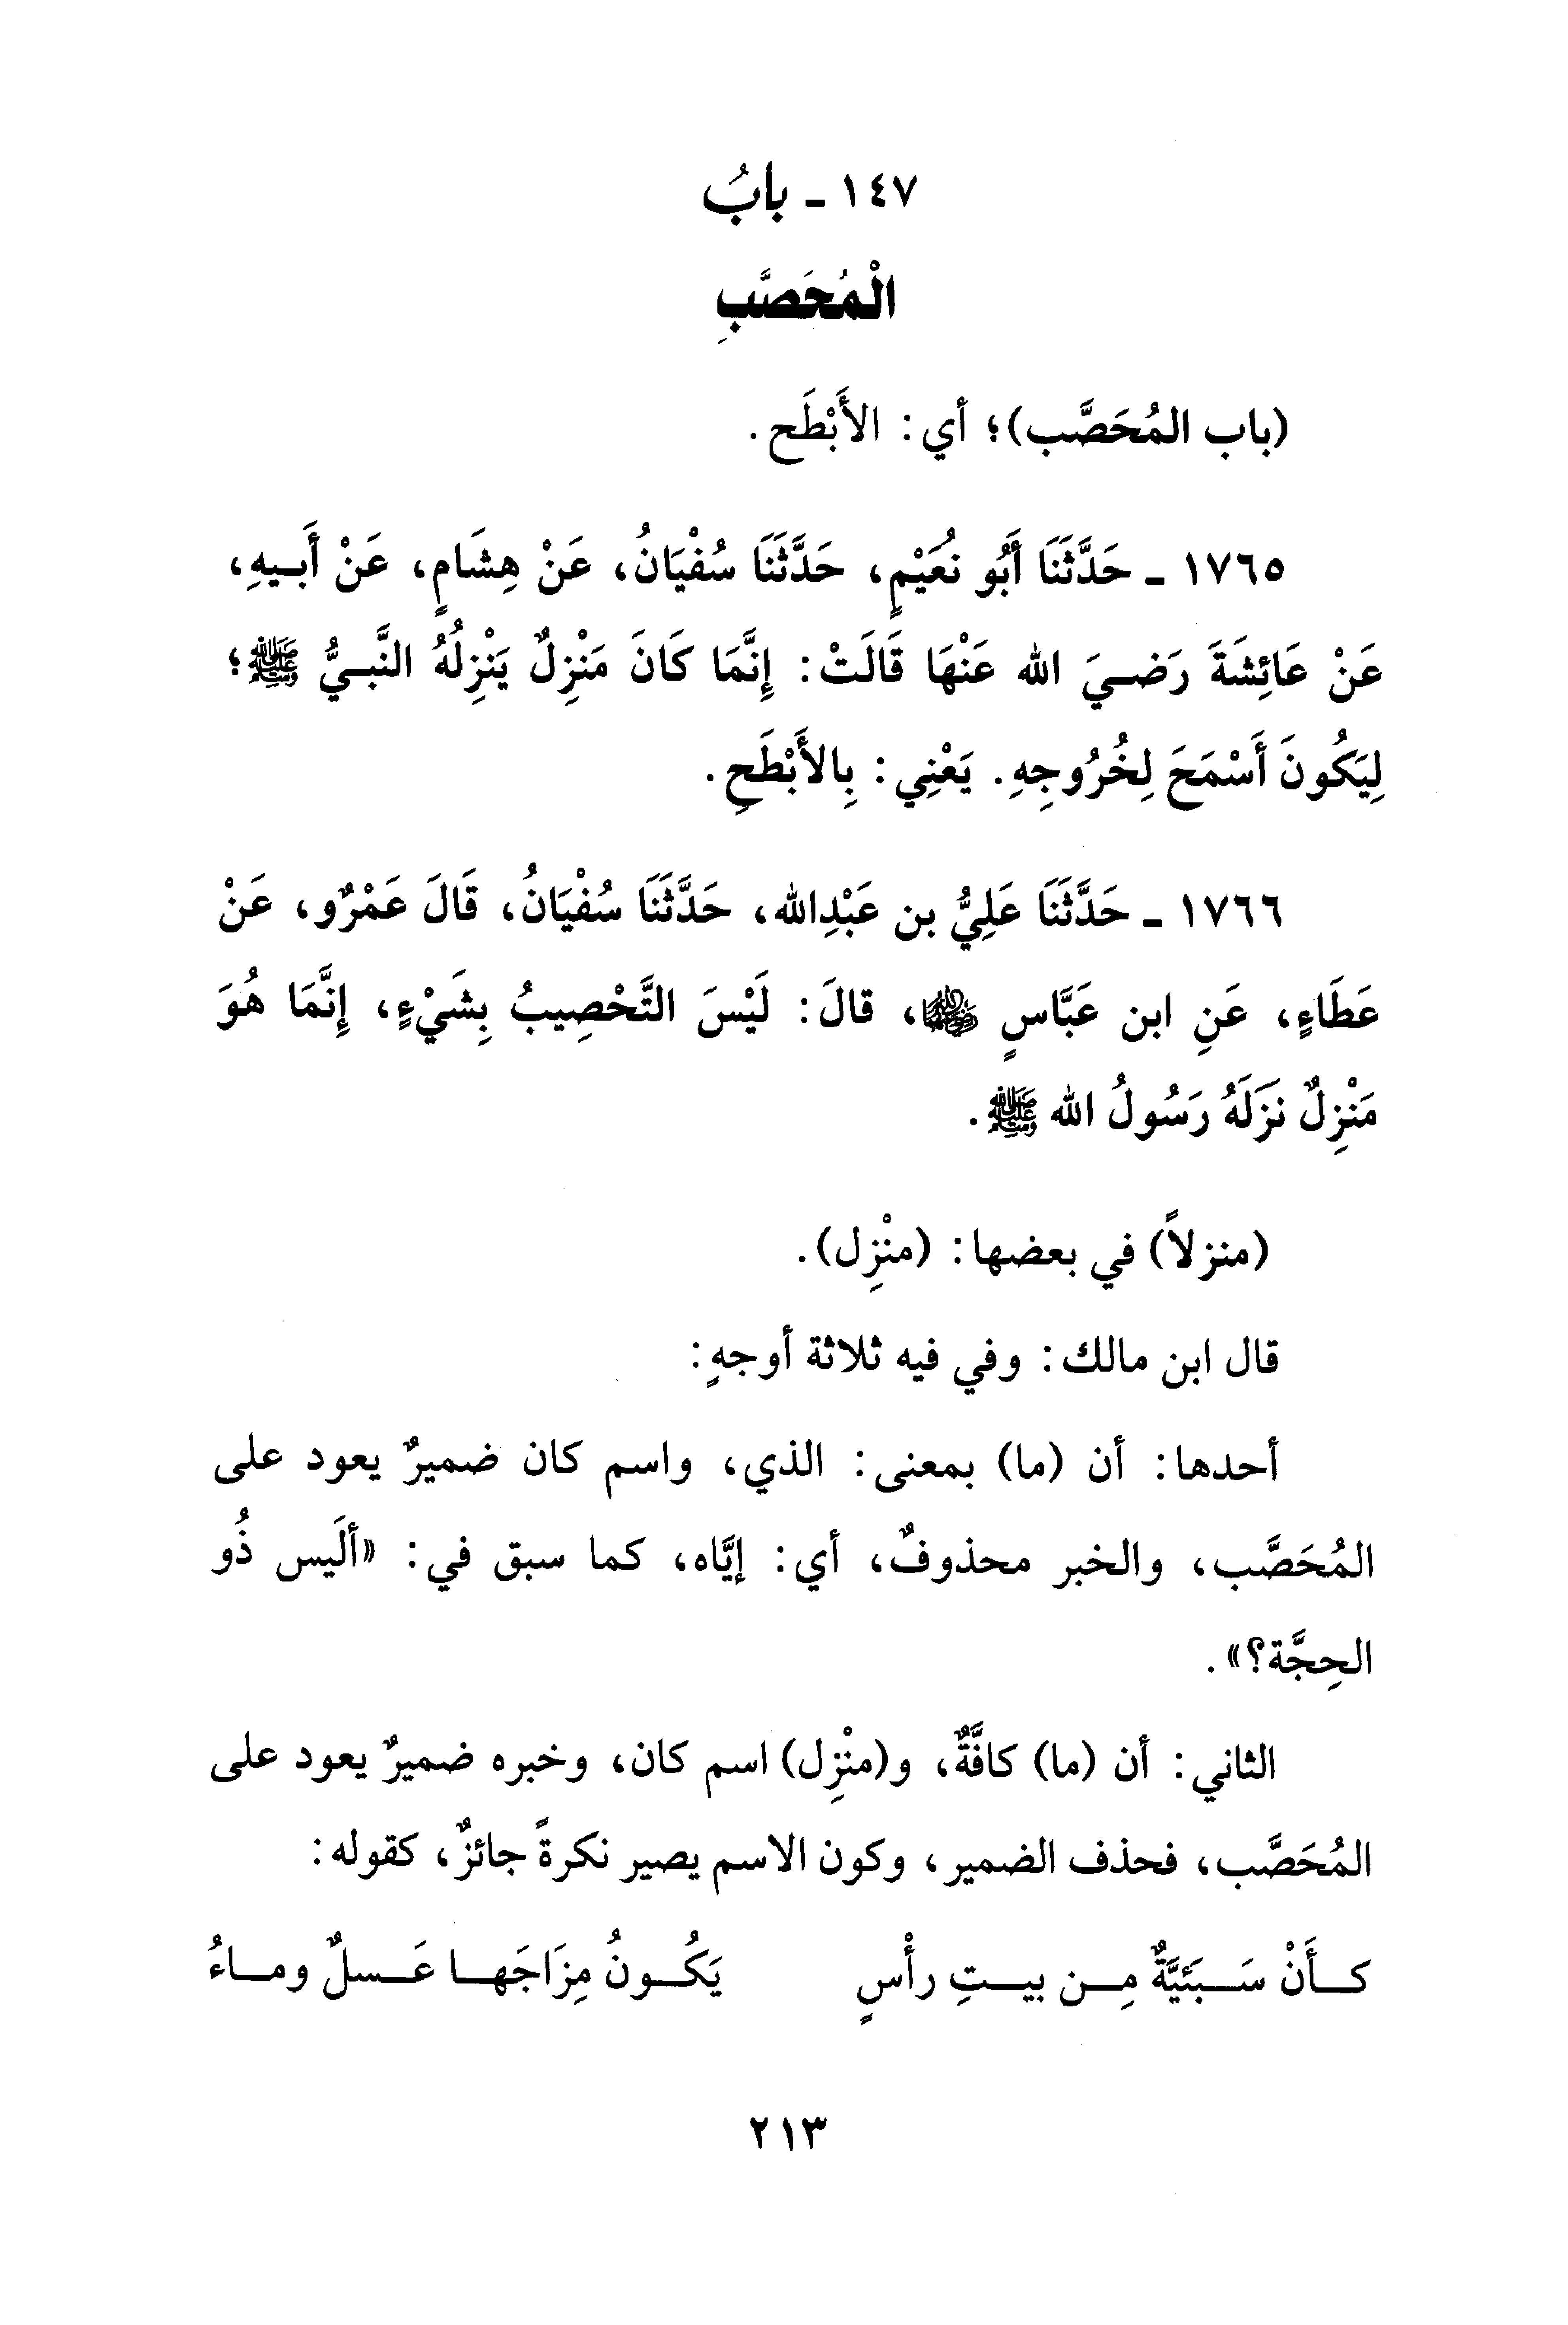 ١٤٧ - بابُ
الْمُحَصَّبِ
(باب المُحَصَّب)؛ أي: الأَبْطَح.
١٧٦٥ - حَدَّثَنَا أَبُو نُعَيْمٍ، حَدَّثَنَا سُفْيَانُ، عَنْ هِشَامٍ، عَنْ أَبـيهِ،
عَنْ عَائِشَةَ رَضـيَ الله عَنْهَا قَالَتْ: إِنَّمَا كَانَ مَنْزِلٌ يَنْزِلُهُ النَّبـيُّ ﷺ؛
لِيَكُونَ أَسْمَحَ لِخُرُوجِهِ. يَعْنِي: بِالأَبْطَحِ.
١٧٦٦ - حَدَّثَنَا عَلِيُّ بن عَبْدِالله، حَدَّثَنَا سُفْيَانُ، قَالَ عَمْرٌو، عَنْ
عَطَاءٍ، عَنِ ابن عَبَّاسٍ ﵄، قالَ: لَيْسَ التَّحْصِيبُ بِشَيْءٍ، إِنَّمَا هُوَ
مَنْزِلٌ نَزَلَهُ رَسُولُ الله ﷺ.
(منزلاً) في بعضها: (منْزِل).
قال ابن مالك: وفي فيه ثلاثة أوجهٍ:
أحدها: أن (ما) بمعنى: الذي، واسم كان ضميرٌ يعود على
المُحَصَّب، والخبر محذوفٌ، أي: إيَّاه، كما سبق في: «ألَيس ذُو
الحِجَّة؟».
الثاني: أن (ما) كافَّةٌ، و(منْزِل) اسم كان، وخبره ضميرٌ يعود على
المُحَصَّب، فحذف الضمير، وكون الاسم يصير نكرةً جائزٌ، كقوله:
كـأَنْ سَـبَئيَّةٌ مِـن بيـتِ رأْسٍ يَكُـونُ مِزَاجَهـا عَـسلٌ ومـاءُ
٢١٣